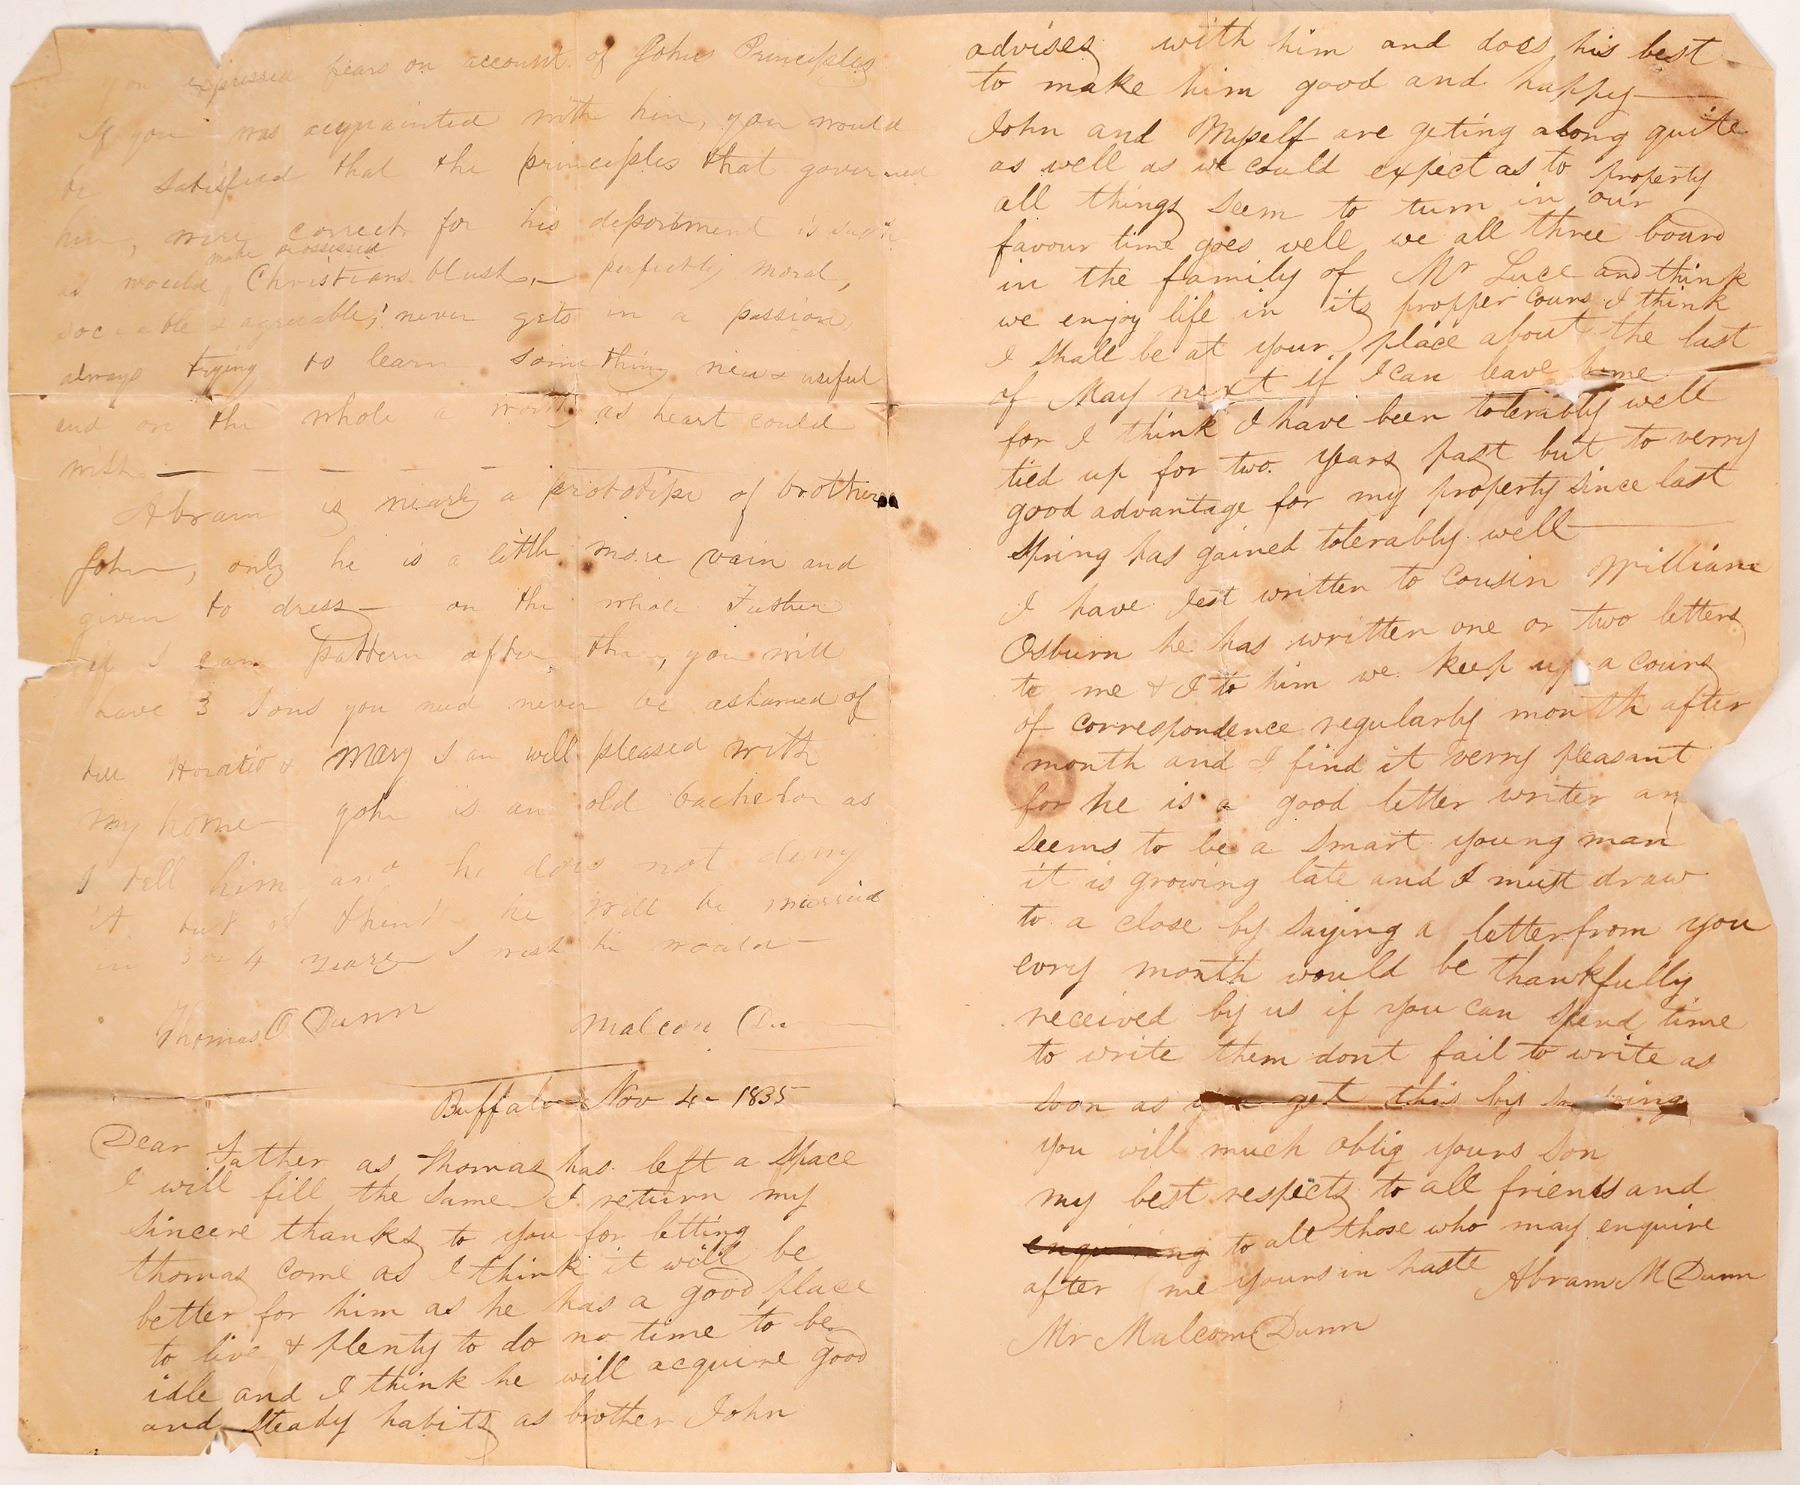 you expressed fears on account of Johns Principles
If you was acquainted with him, you would
be satisfied that the principles that governed
him, were correct for his deportment is such
make possessed
as would Christians blush,— perfectly moral,
sociable & agreeable; never gets in a passion,
always trying to learn something new & useful
and on the whole a worthy as heart could
wish — — — — —
Abram is nearly a prototipe of brother
John, only he is a little more vain and
given to dress — on the whole Father
if I can pattern after them, you will
have 3 Sons you need never be ashamed of
tell Horatio & Mary I am well pleased with
my home — John is an old bachelor as
I tell him and he does not deny
it but I think he will be married
in 3 or 4 years I wish he would —
Thomas O. Dunn Malcom Du
Buffalo Nov 4 - 1835
Dear Father as Thomas has left a Space
I will fill the Same I return my
Sincere thanks to you for letting
thomas come as I think it will be
better for him as he has a good place
to live & plenty to do no time to be
idle and I think he will acquire good
and Steady habits as brother John
advises with him and does his best
to make him good and happy —
John and Myself are geting along quite
as well as we could expect as to property
all things Seem to turn in our
favour time goes well we all three board
in the family of Mr Luce and think
we enjoy life in its propper cours I think
I Shall be at your place about the last
of May next if I can leave home
for I think I have been tolerably well
tied up for two years past but to verry
good advantage for my property Since last
Spring has gained tolerably well —
I have Jest written to Cousin William
Osburn he has written one or two letters
to me & I to him we keep up a cours
of correspondence regularly month after
month and I find it verry pleasant
for he is a good letter writer an
Seems to be a Smart young man
it is growing late and I must draw
to a close by Saying a letter from you
evry month would be thankfully
received by us if you can Spend time
to write them dont fail to write as
soon as you get this by so doing
you will much oblig yours Son
my best respects to all friends and
enquiring to all those who may enquire
after me yours in haste Abram M Dunn
Mr Malcom Dunn